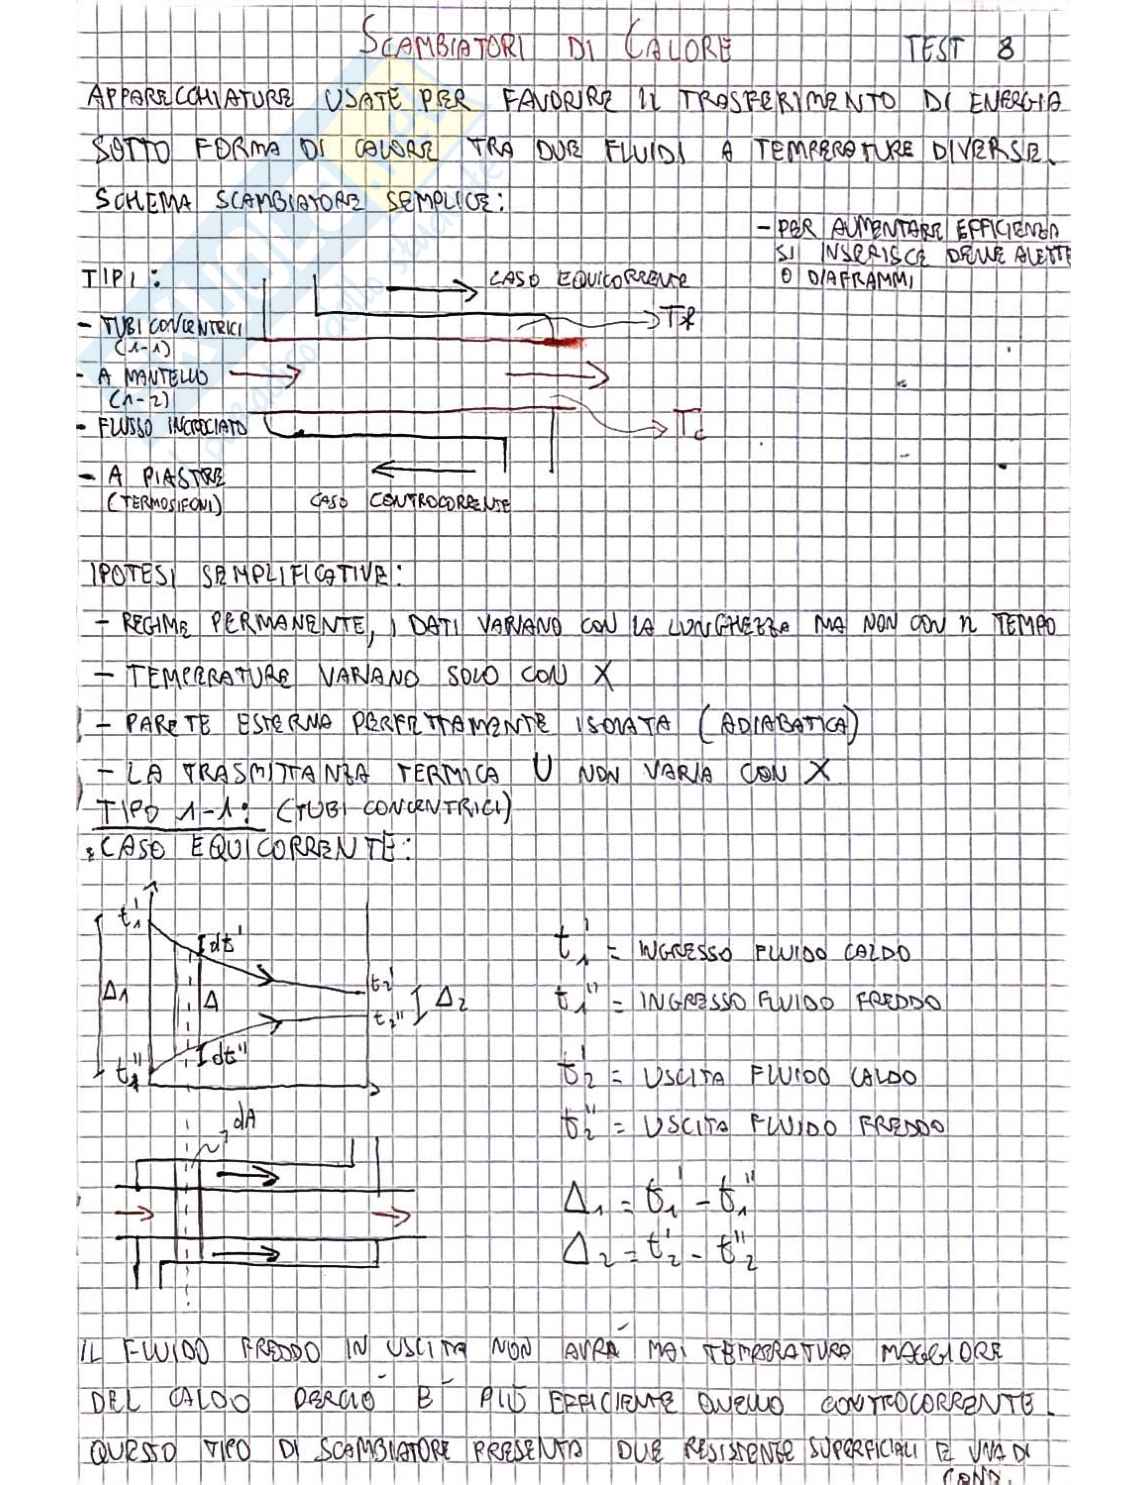 SCAMBIATORI DI CALORE TEST 8
APPARECCHIATURE USATE PER FAVORIRE IL TRASFERIMENTO DI ENERGIA
SOTTO FORMA DI CALORE TRA DUE FLUIDI A TEMPERATURE DIVERSE.
SCHEMA SCAMBIATORE SEMPLICE:
- PER AUMENTARE EFFICIENZA
SI INSERISCE DELLE ALETTE
O DIAFRAMMI
TIPI:
CASO EQUICORRENTE
- TUBI CONCENTRICI
(1-1)
Tf
- A MANTELLO
(1-2)
- FLUSSO INCROCIATO
Tc
- A PIASTRE
(TERMOSIFONI)
CASO CONTROCORRENTE
IPOTESI SEMPLIFICATIVE:
- REGIME PERMANENTE, I DATI VARIANO CON LA LUNGHEZZA MA NON CON IL TEMPO
- TEMPERATURE VARIANO SOLO CON X
- PARETE ESTERNA PERFETTAMENTE ISOLATA (ADIABATICA)
- LA TRASMITTANZA TERMICA U NON VARIA CON X
TIPO 1-1: (TUBI CONCENTRICI)
CASO EQUICORRENTE:
t₁'
dt'
t₁' = INGRESSO FLUIDO CALDO
Δ₁
Δ
t₂'
t₂''
Δ₂
t₁'' = INGRESSO FLUIDO FREDDO
dt''
t₁''
t₂' = USCITA FLUIDO CALDO
dA
t₂'' = USCITA FLUIDO FREDDO
Δ₁ = t₁' - t₁''
Δ₂ = t₂' - t₂''
IL FLUIDO FREDDO IN USCITA NON AVRÀ MAI TEMPERATURA MAGGIORE
DEL CALDO PERCIÒ È PIÙ EFFICIENTE QUELLO CONTROCORRENTE.
QUESTO TIPO DI SCAMBIATORE PRESENTA DUE RESISTENZE SUPERFICIALI E UNA DI
COND.